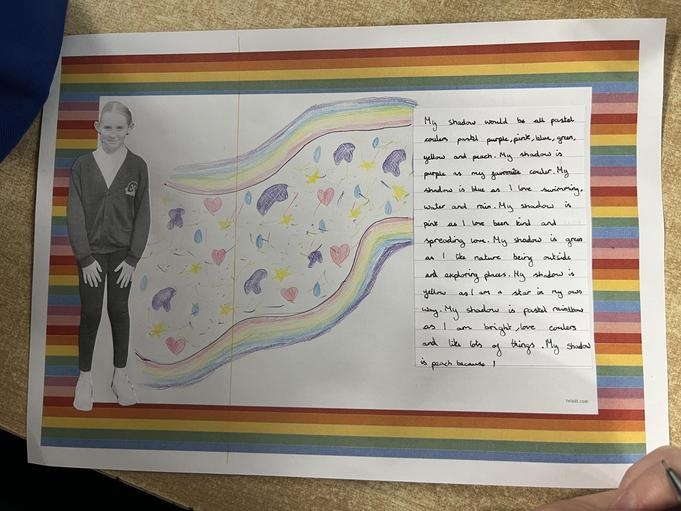 My shadow would be all pastel
coulers pastel purple, pink, blue, green,
yellow and peach. My shadow is
purple as my favourite couler. My
shadow is blue as I love swimming,
water and rain. My shadow is
pink as I love been kind and
spreading love. My shadow is green
as I like nature being outside
and exploring places. My shadow is
yellow as I am a star in my own
way. My shadow is pastel rainbow
as I am bright, love coulers
and like lots of things. My shadow
is peach because I
twinkl.com